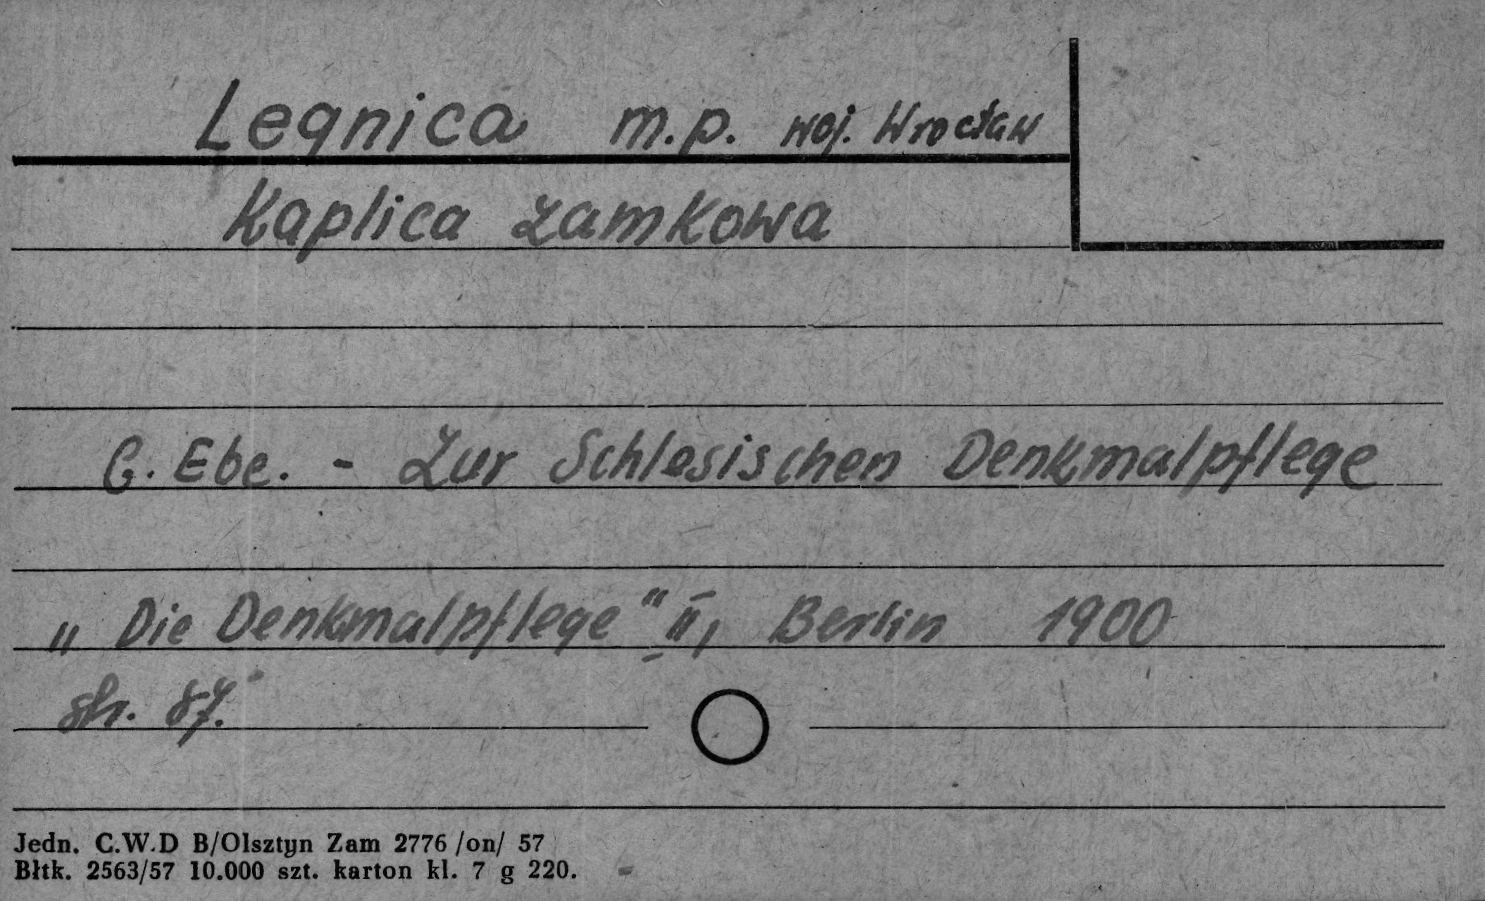 Legnica m.p. woj. Wrocław
Kaplica zamkowa
G. Ebe. - Zur Schlesischen Denkmalpflege
„ Die Denkmalpflege" II, Berlin 1900
str. 87.
Jedn. C.W.D B/Olsztyn Zam 2776 /on/ 57
Błtk. 2563/57 10.000 szt. karton kl. 7 g 220.